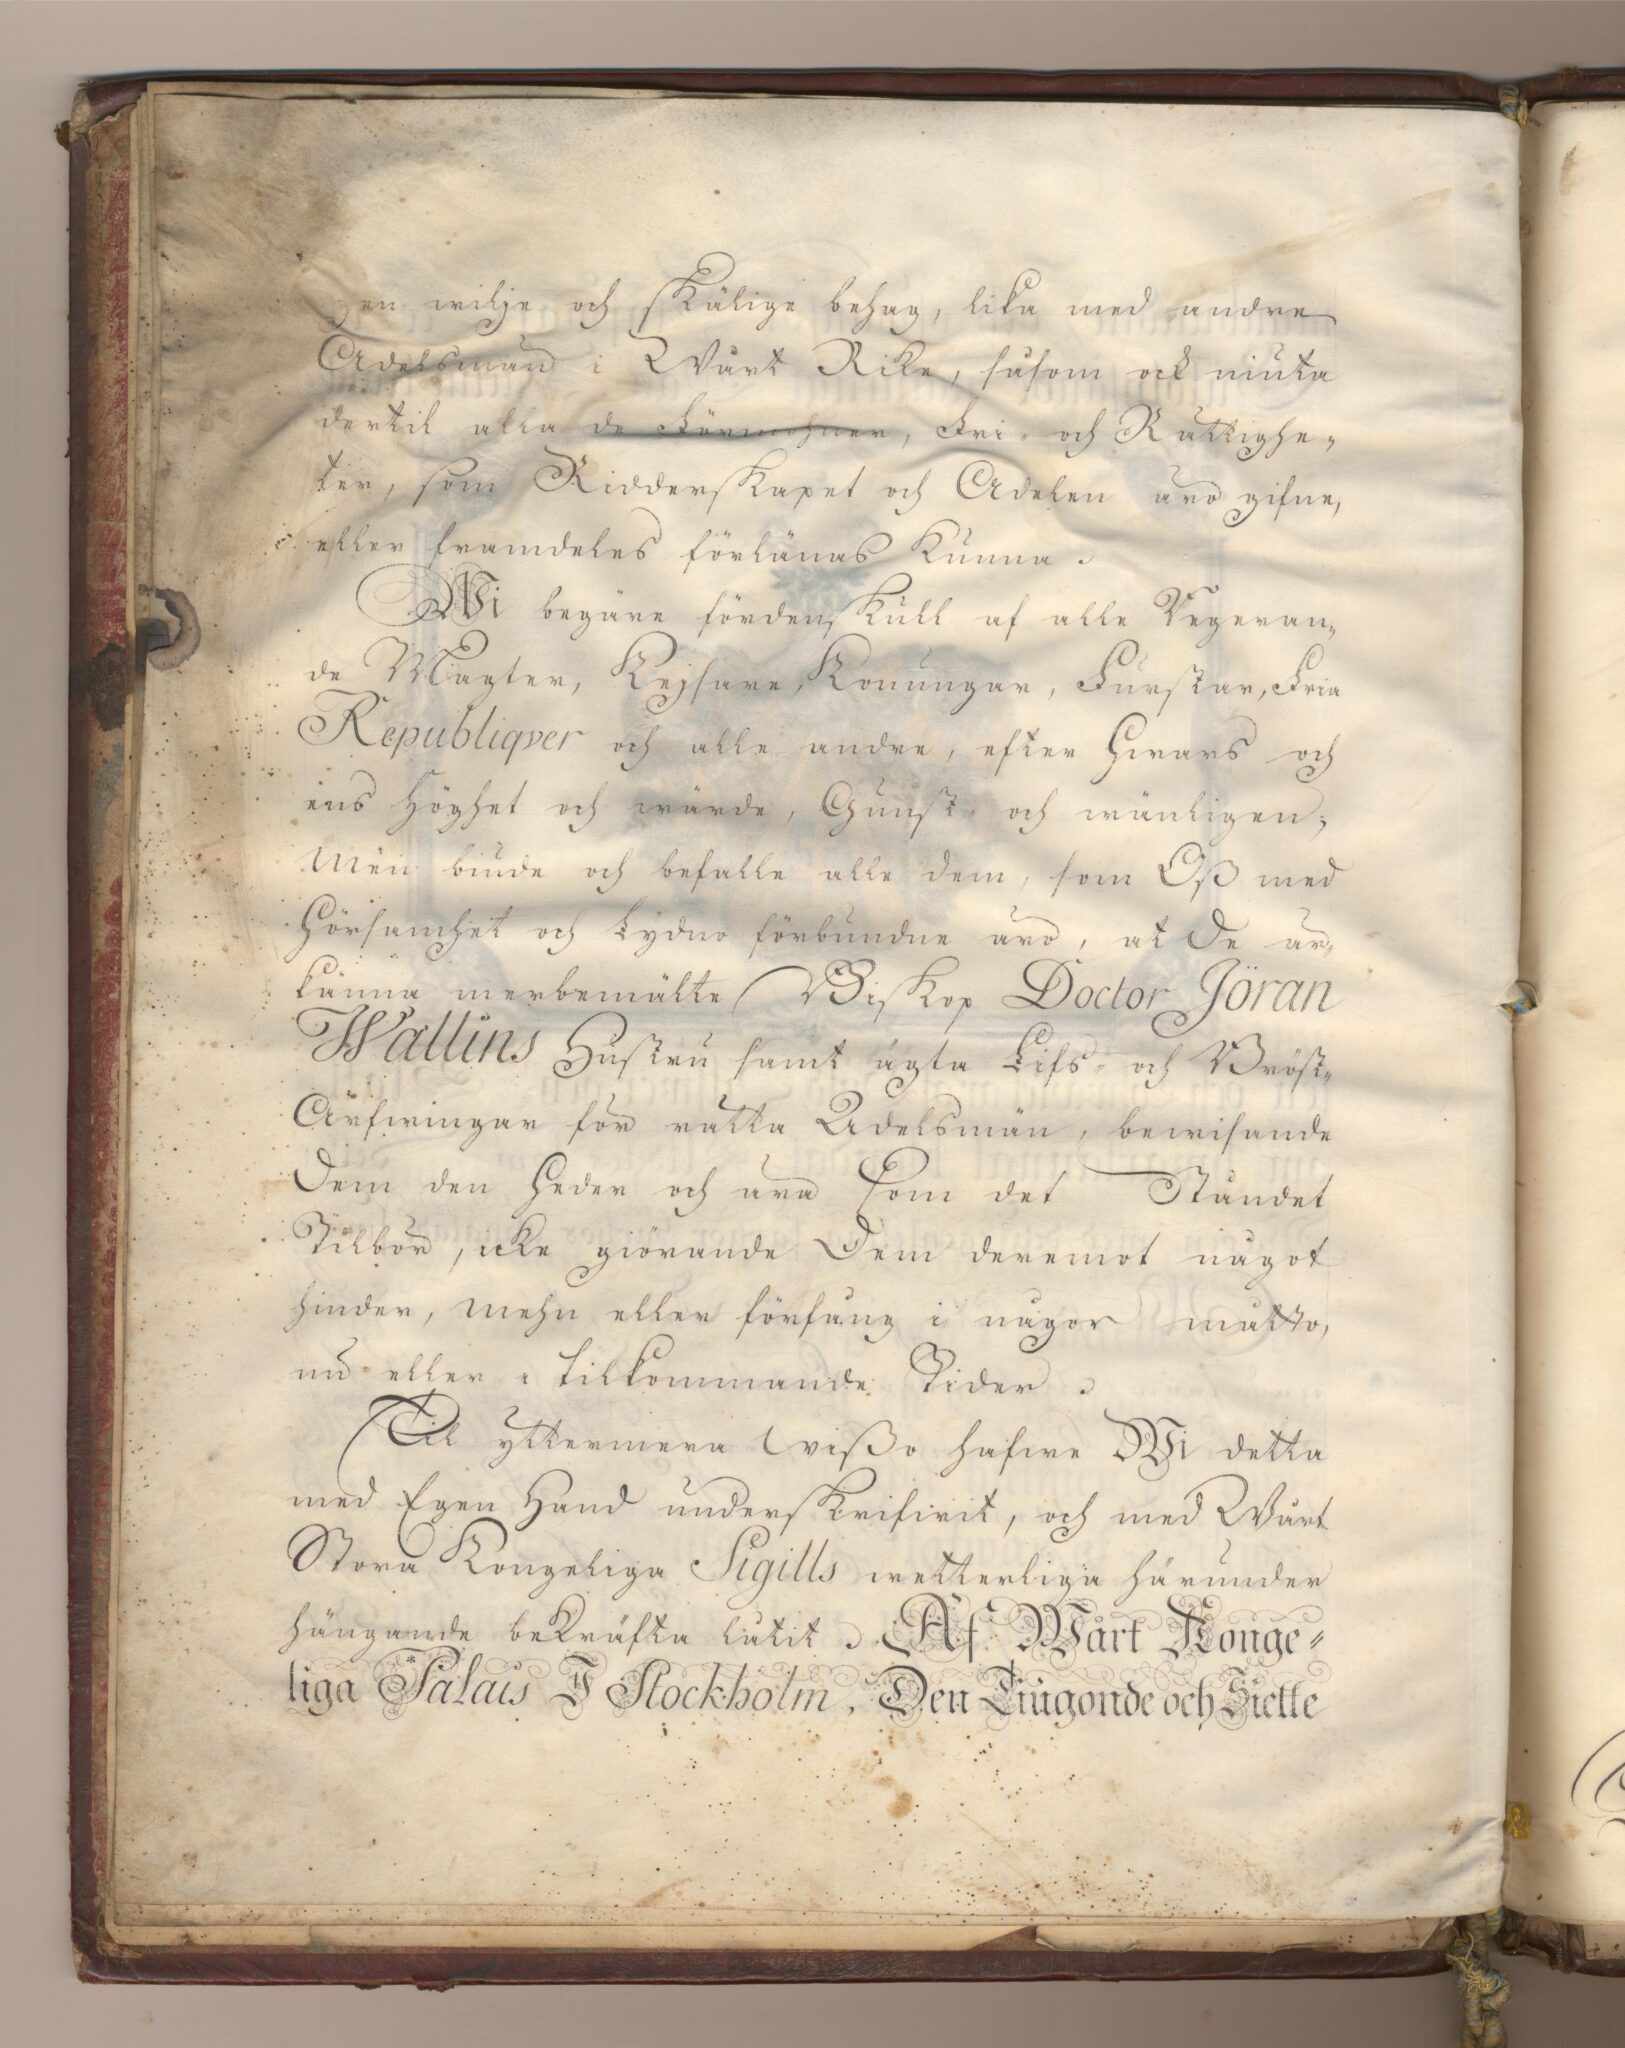 en wilje och skälige behag, lika med andre
Adelsmän i Wårt Rike, såsom ock niuta
dertil alla de Förmohner, Fri- och Rättighe-
ter, som Ridderskapet och Adelen äro gifne,
eller framdeles förlänas kunna.
Wi begäre fördenskull af alle Regeran-
de Magter, Kejsare, Konungar, Furstar, Fria
Republiqver och alle andre, efter hwars och
ens Höghet och wärde, Gunst- och wänligen;
Men biude och befalle alle dem, som Oß med
Hörsamhet och Lydno förbundne äro, at De är-
känna merbemälte Biskop Doctor Jöran
Wallins Hustru samt ägta Lifs- och Bröst-
Arfwingar för rätta Adelsmän, bewisande
Dem den Heder och ära som det Ståndet
Tilbör, icke giörande Dem deremot något
hinder, mehn eller förfång i någor måtto,
nu eller i tilkommande Tider.
Til yttermera wißo hafwe Wi detta
med Egen Hand underskrifwit, och med Wårt
Stora Kongeliga Sigills wetterliga härunder
hängande bekräfta låtit. Af Wårt Konge-
liga Palais I Stockholm, Den Tiugonde och Siette